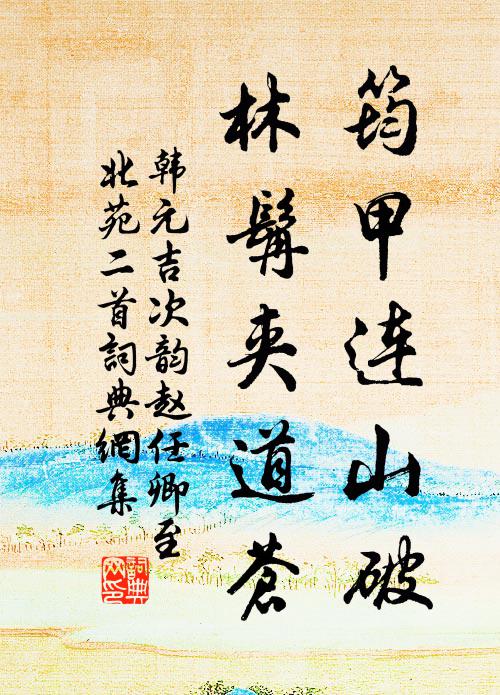 筠甲连山破
林髯夹道蒼
韩元吉次韵赵任卿至
北苑二首詞典網集
詞典網印